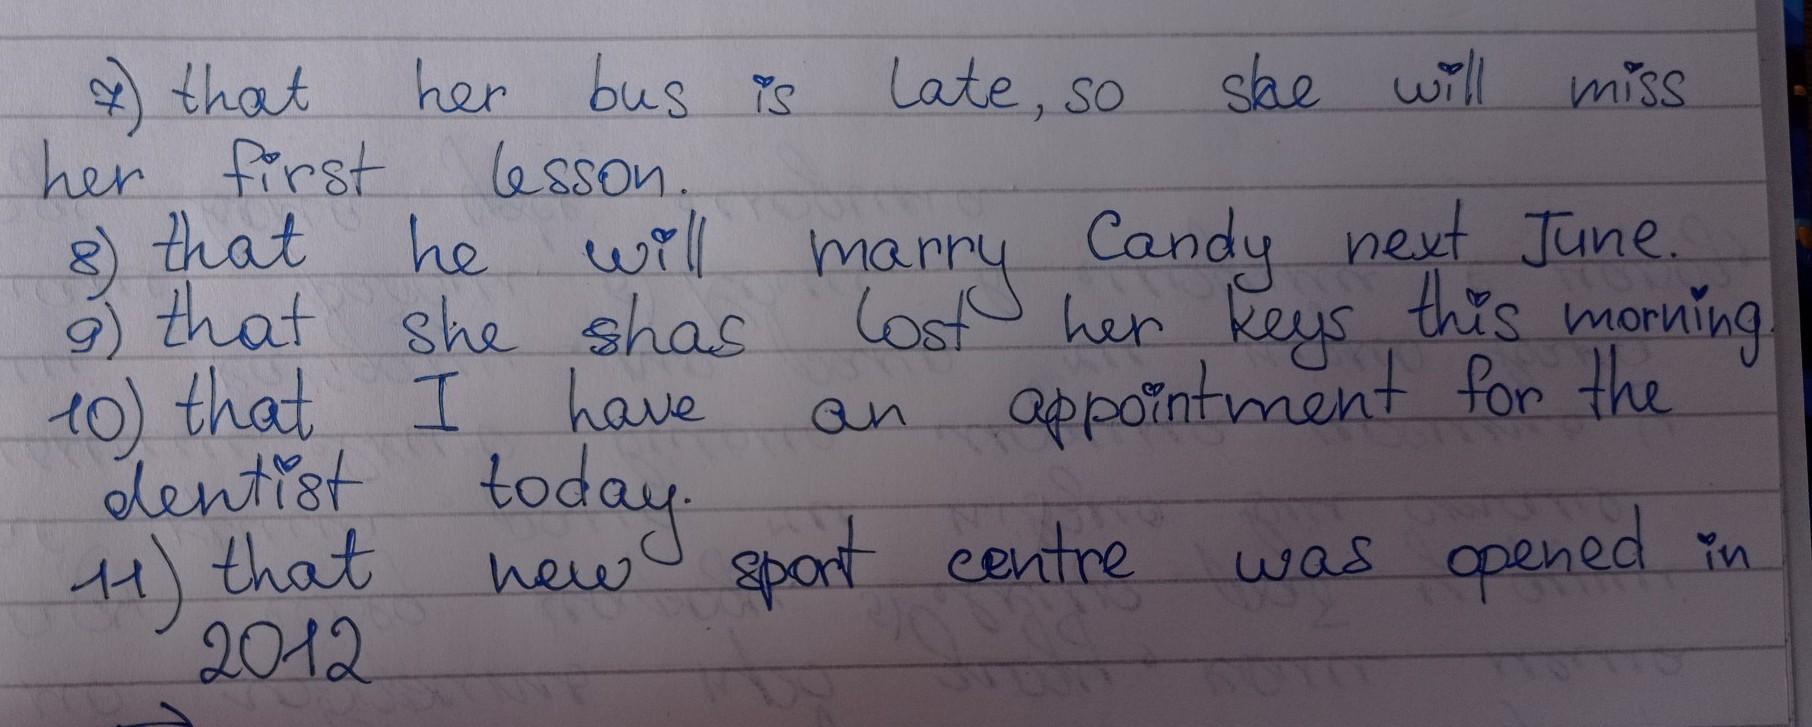 7) that her bus is late, so she will miss
her first lesson.
8) that he will marry Candy next June.
9) that she shas lost her keys this morning.
10) that I have an appointment for the
dentist today.
11) that new sport centre was opened in
2012